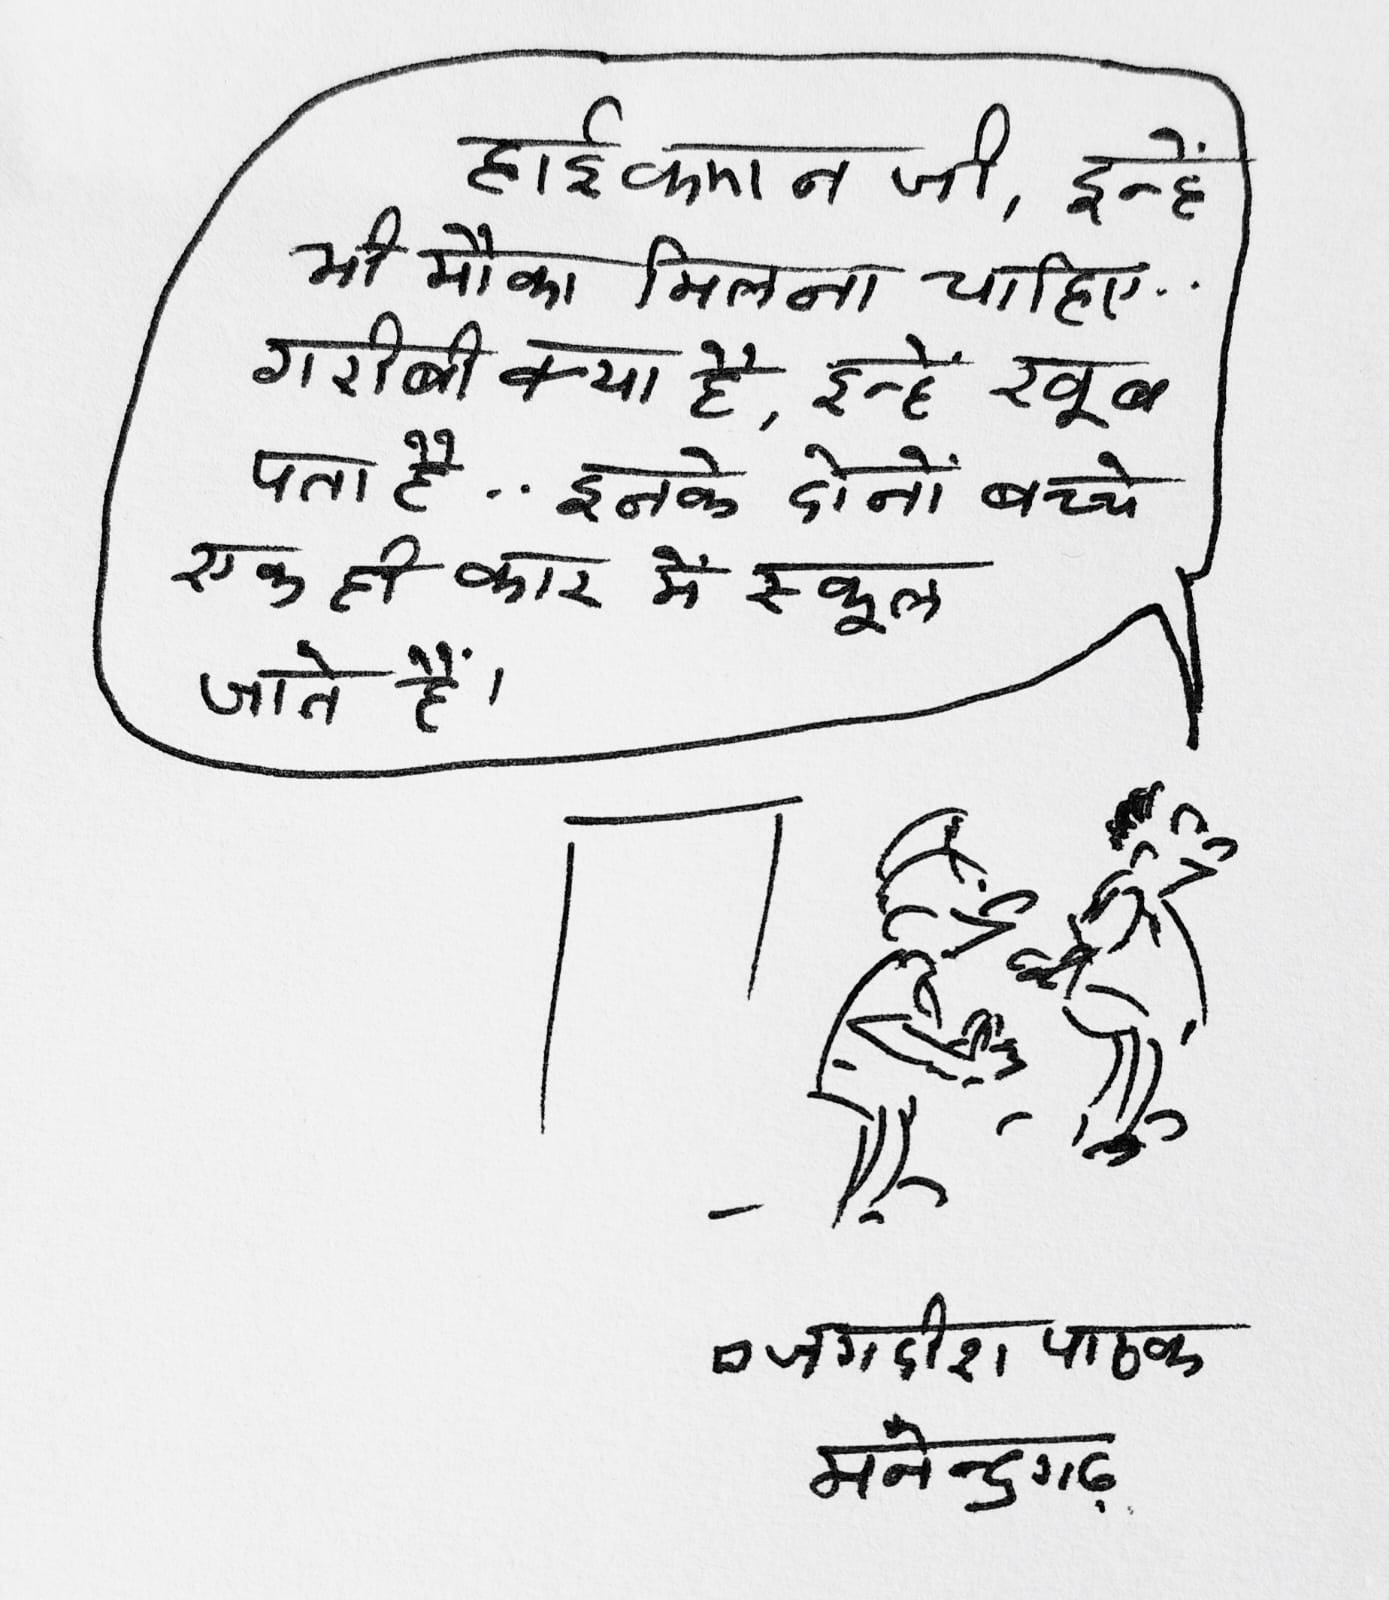 हाईकमान जी, इन्हें
भी मौका मिलना चाहिए..
गरीबी क्या है, इन्हें खूब
पता है.. इनके दोनों बच्चे
एक ही कार में स्कूल
जाते हैं।
जगदीश पाठक
मनेन्द्रगढ़